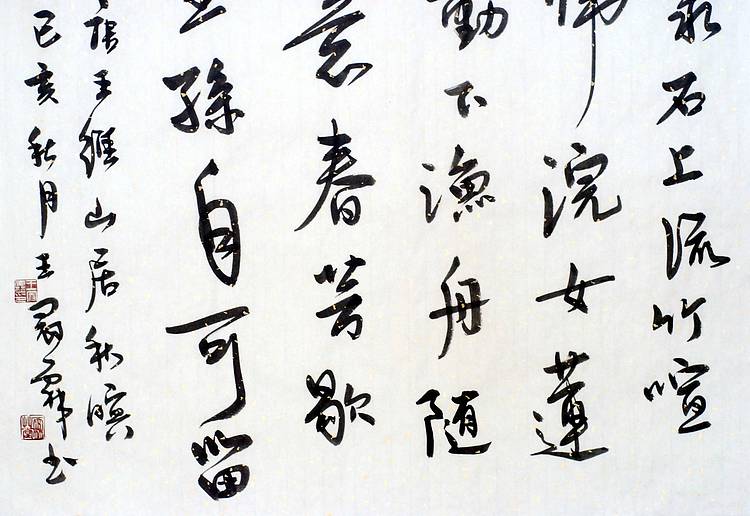 泉石上流竹喧
歸浣女蓮
動下漁舟随
意春芳歇
孫自可留
唐王維山居秋暝
己亥秋月王书